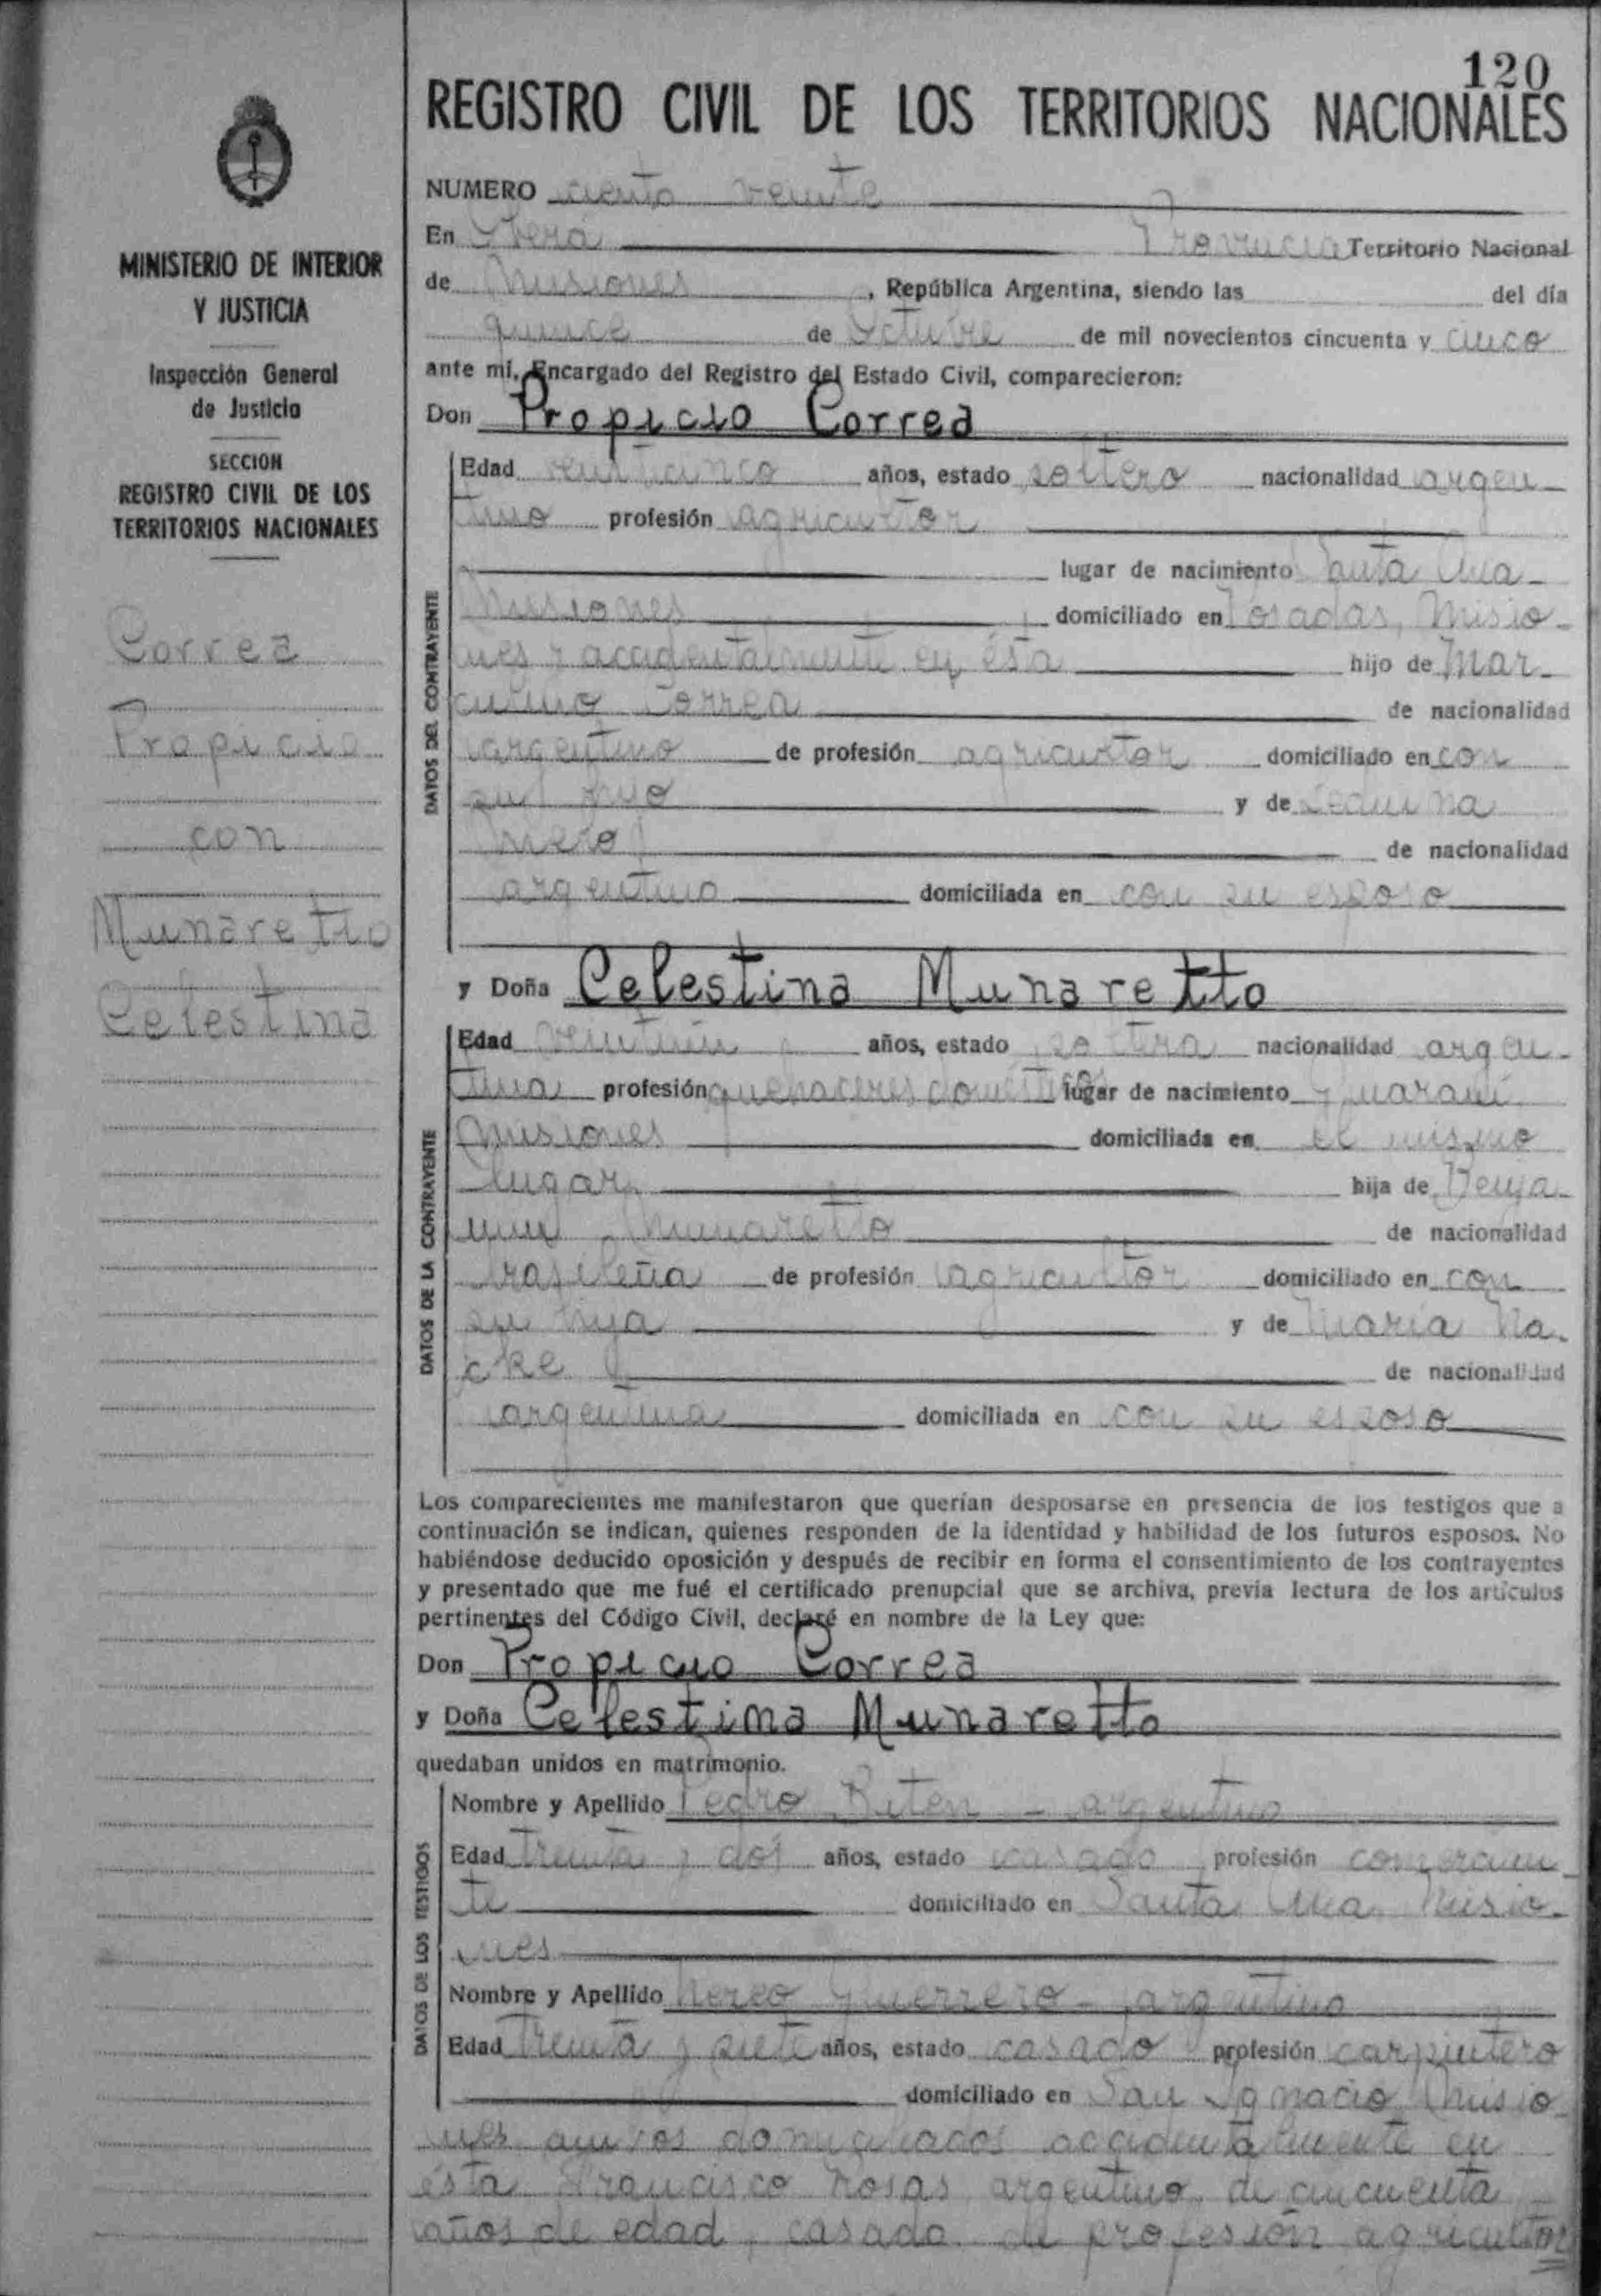 120
REGISTRO CIVIL DE LOS TERRITORIOS NACIONALES
MINISTERIO DE INTERIOR
Y JUSTICIA
Inspección General
de Justicia
SECCION
REGISTRO CIVIL DE LOS
TERRITORIOS NACIONALES
Correa
Propicio
con
Munaretto
Celestina
NUMERO ciento veinte
En Oberá Provincia Territorio Nacional
de Misiones, República Argentina, siendo las del día
quince de Octubre de mil novecientos cincuenta y cinco
ante mí, Encargado del Registro del Estado Civil, comparecieron:
Don Propicio Correa
DATOS DEL CONTRAYENTE
Edad veinticinco años, estado soltero nacionalidad argen-
tino profesión agricultor
lugar de nacimiento Santa Ana-
Misiones domiciliado en Posadas, Misio-
nes y accidentalmente en ésta hijo de Mar-
culino Correa de nacionalidad
argentino de profesión agricultor domiciliado en con
su hijo y de
de nacionalidad
argentino domiciliada en con su esposo
y Doña Celestina Munaretto
DATOS DE LA CONTRAYENTE
Edad veintiún años, estado soltera nacionalidad argen-
tina profesión quehaceres domésticos lugar de nacimiento Guaraní
Misiones domiciliada en el mismo
lugar hija de Benja-
mín Munaretto de nacionalidad
brasileña de profesión agricultor domiciliado en con
su hija y de María Na-
cke de nacionalidad
argentina domiciliada en con su esposo
Los comparecientes me manifestaron que querían desposarse en presencia de los testigos que a
continuación se indican, quienes responden de la identidad y habilidad de los futuros esposos. No
habiéndose deducido oposición y después de recibir en forma el consentimiento de los contrayentes
y presentado que me fué el certificado prenupcial que se archiva, previa lectura de los artículos
pertinentes del Código Civil, declaré en nombre de la Ley que:
Don Propicio Correa
y Doña Celestina Munaretto
quedaban unidos en matrimonio.
DATOS DE LOS TESTIGOS
Nombre y Apellido Pedro Riten - argentino
Edad treinta y dos años, estado casado profesión comercian-
te domiciliado en Santa Ana Misio-
nes
Nombre y Apellido Nereo Guerrero - argentino
Edad treinta y siete años, estado casado profesión carpintero
domiciliado en San Ignacio Misio-
nes ambos domiciliados accidentalmente en
ésta Francisco Rosas argentino, de cincuenta
años de edad, casado de profesión agricultor